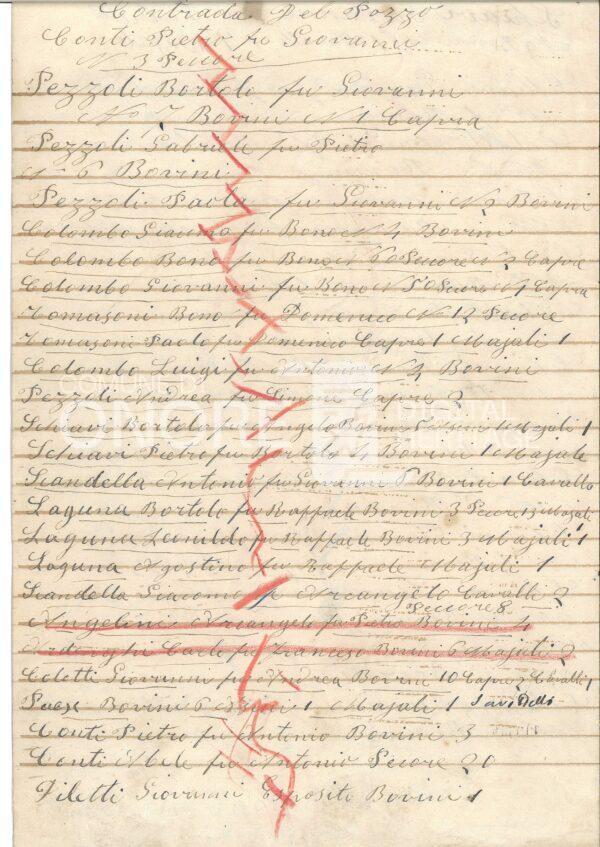 Contrada Del Pozzo
Conti Pietro fu Giovanni
N 3 Peccore
Pezzoli Bortolo fu Giovanni
No 7 Bovini N 1 Capra
Pezzoli Gabriele fu Pietro
N 6 Bovini
Pezzoli Paolo fu Giovanni N 2 Bovini
Colombo Giacomo fu Bono N 4 Bovini
Colombo Bono fu Bono N Peccore N 2 Capre
Colombo Giovanni fu Bono N Peccore N 1 Capra
Tomasoni Bono fu Domenico N 12 Pecore
Tomasoni Paolo fu Domenico Capre 1 Majali 1
Colombo Luigi fu Antonio N 4 Bovini
Pezzoli Andrea fu Simone Capre 2
Schiavi Bortolo fu Angelo Bovini Majali 1
Schiavi Pietro fu Bortolo 4 Bovini 1 Majale
Scandella Antonio fu Giovanni 6 Bovini 1 Cavallo
Laguna Bortolo fu Raffaele Bovini 3 Pecore Majali
Laguna Zanildo fu Raffaele Bovini 3 Majali 1
Laguna Agostino fu Raffaele Majali 1
Scandella Giacomo fu Arcangelo Cavalli 2
Peccore 8
Angelini Arcangelo fu Pietro Bovini 4
Carlo fu Francesco Bovini 6 Majali 2
Coletti Giovanni fu Andrea Bovini 10 Capre 2 Cavalli 1
Bovini 6 1 Majali 1
Conti Pietro fu Antonio Bovini 3
Conti Abele fu Antonio Pecore 20
Piletti Giovanni Esposito Bovini 1
COMUNE DI
ONORE
DIGITAL